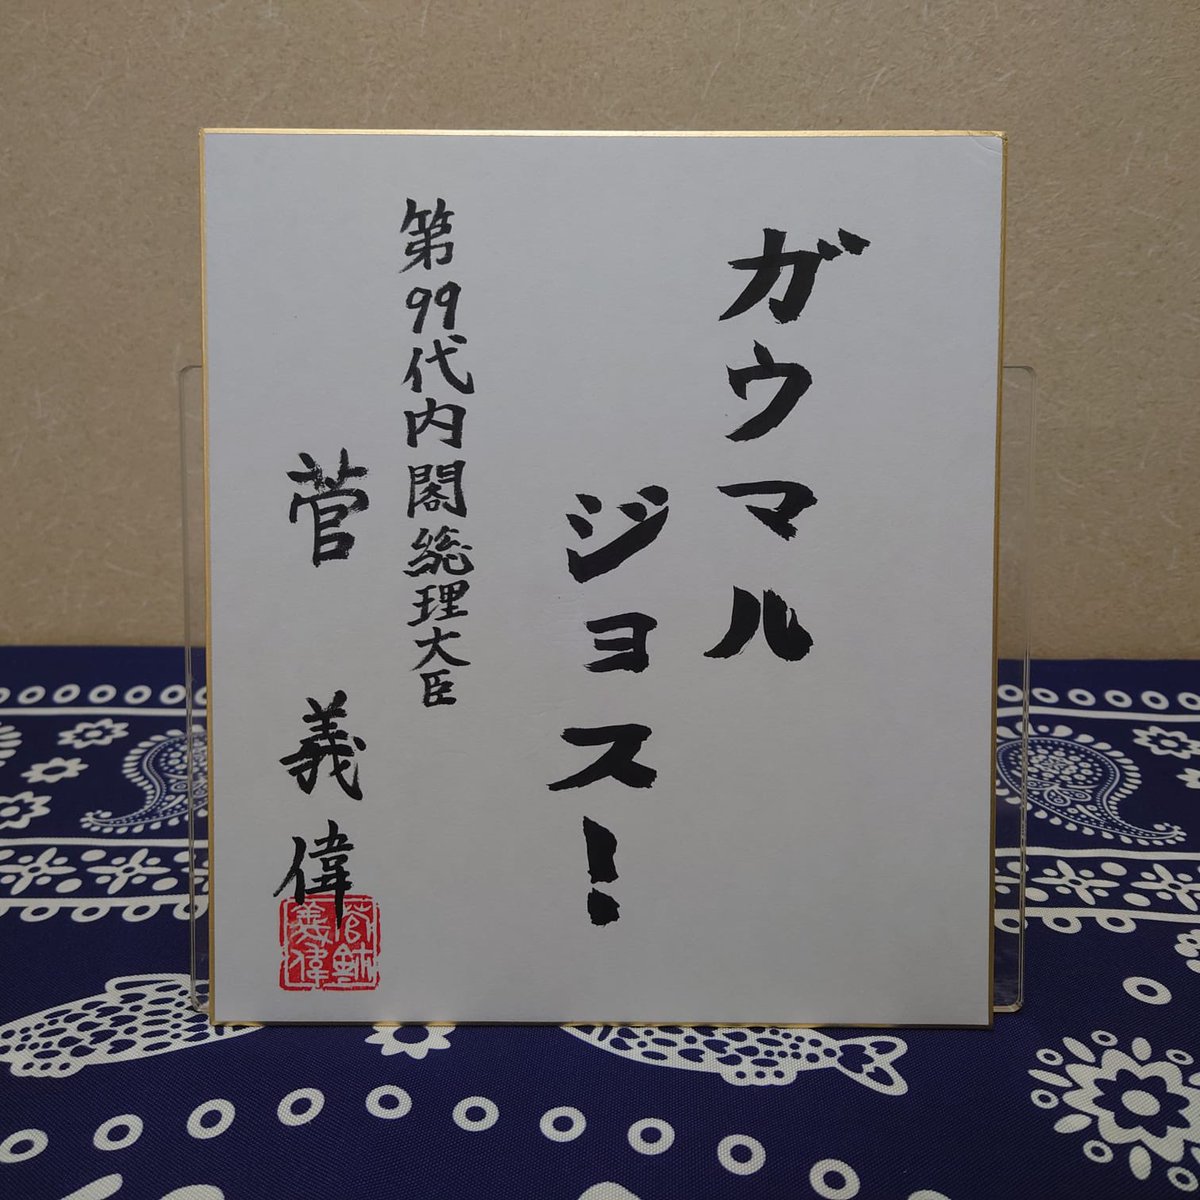 ガウマル
ジョス!
第99代内閣総理大臣
菅義偉